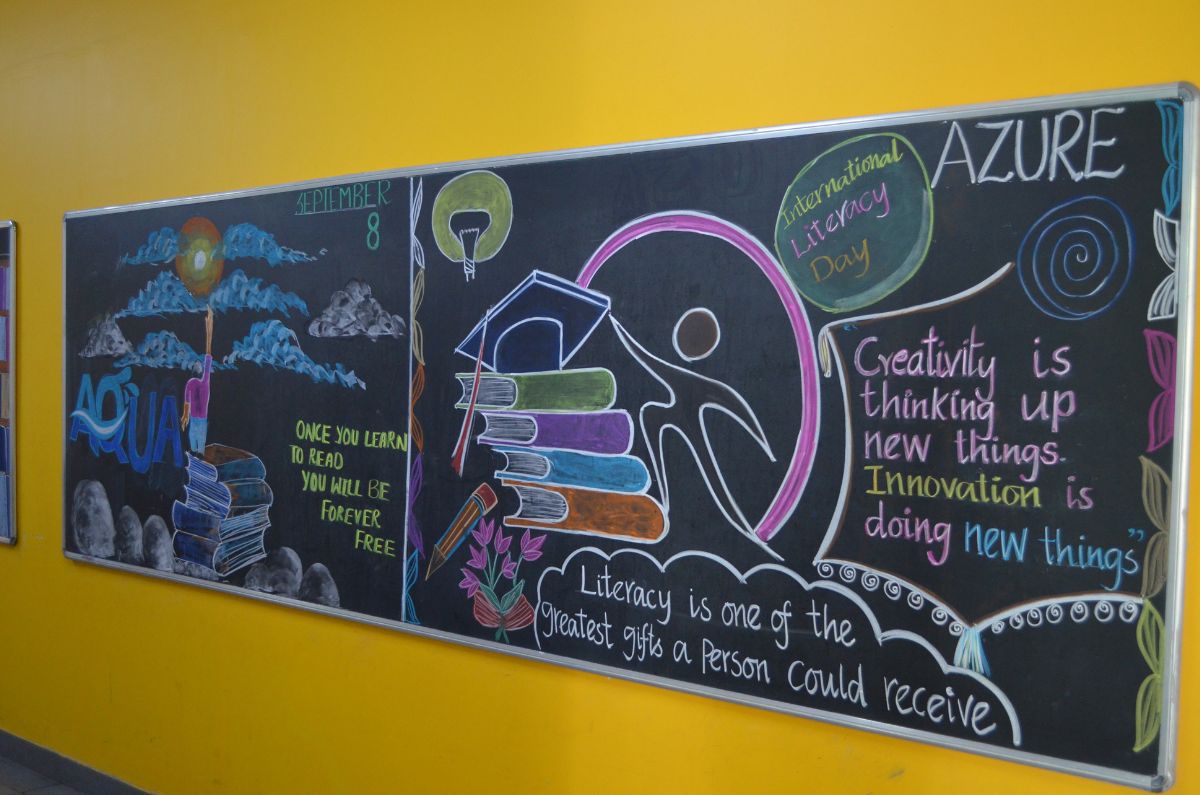 SEPTEMBER
8
AQUA
ONCE YOU LEARN
TO READ
YOU WILL BE
FOREVER
FREE
International
Literacy
Day
AZURE
"Creativity is
thinking up
new things.
Innovation is
doing new things"
Literacy is one of the
greatest gifts a Person Could receive